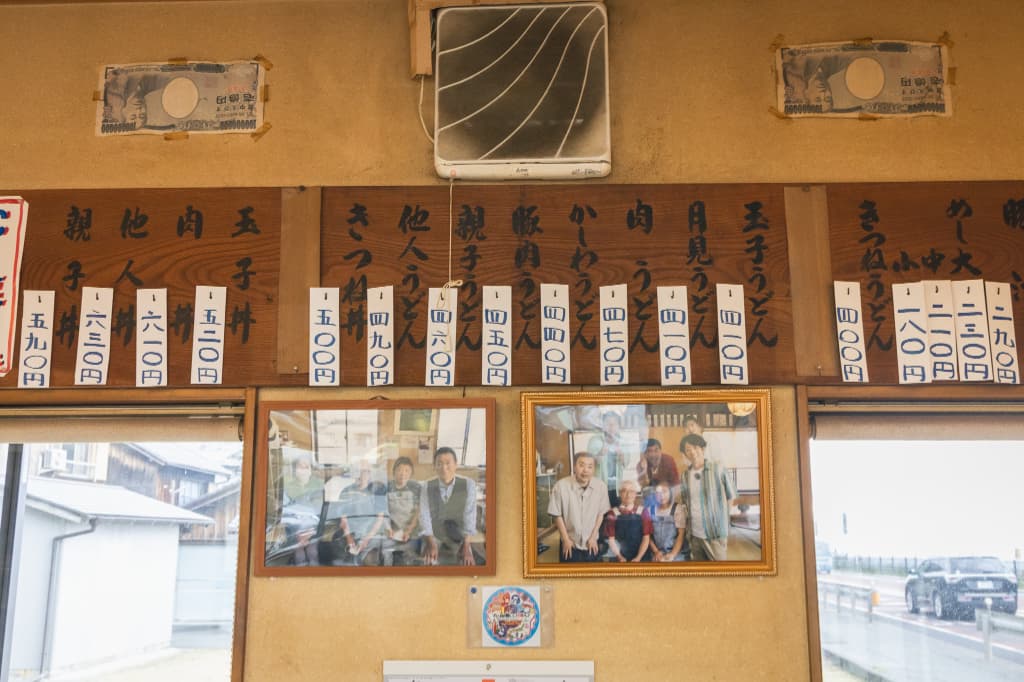 豚
二九〇円
めし大
二三〇円
中
二一〇円
小
一八〇円
きつねうどん
四〇〇円
玉子うどん
四一〇円
月見うどん
四一〇円
肉うどん
四七〇円
かしわうどん
四四〇円
豚肉うどん
四五〇円
親子うどん
四六〇円
他人うどん
四九〇円
きつね丼
五〇〇円
玉子丼
五二〇円
肉丼
六一〇円
他人丼
六三〇円
親子丼
五九〇円
壱億円
壱億円